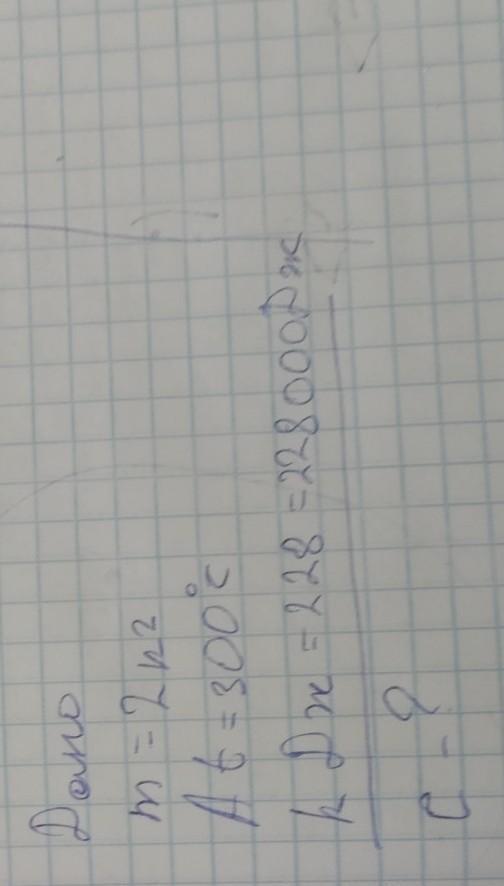 Дано
m = 2 кг
Δt = 300°C
кДж = 228 = 228000Дж
C - ?